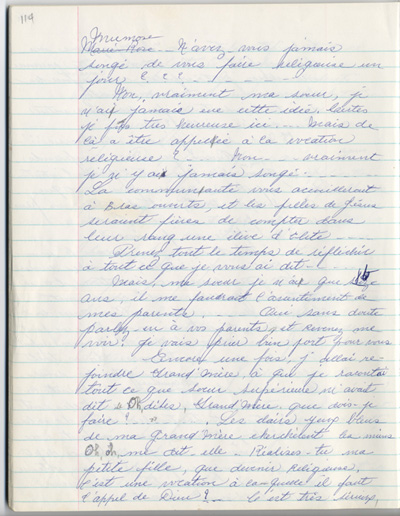 119
Mumose
Marie-Rose - N'avez-vous jamais
songé de vous faire religieuse un
jour ? ? ?
Non, vraiment ma soeur, je
n'ai jamais eue cette idée, certes
je suis très heureuse ici ... Mais de
là a être appelée à la vocation
religieuse ? ... Non ... vraiment
je n'y ai jamais songé.
La communauté vous accueillerait
à bras ouverts, et les filles de Jésus
seraient fières de compter dans
leur rang une élève d'élite
Prenez tout le temps de réfléchir
à tout ce que je vous ai dit -
Mais, ma soeur je n'ai que
ans, il me faudrait l'assentiment de
mes parents. ... Oui sans doute
parlez-en à vos parents et revenez me
voir. Je vais prier bien fort pour vous
- Encore une fois, j'allai re-
joindre Grand'Mère, à qui je racontai
tout ce que soeur supérieure m'avait
dit Oh, dites, Grand'Mère, que dois-je
faire ? - Les clairs yeux bleus
de ma Grand'Mère cherchèrent les miens
Oh, me dit elle - Réalises-tu ma
petite fille, que devenir Religieuse,
c'est une vocation à laquelle il faut
l'appel de Dieu ? - C'est très sérieux,